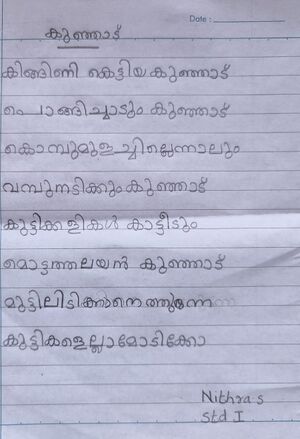 Date :
കുഞ്ഞാട്
കിങ്ങിണി കെട്ടിയ കുഞ്ഞാട്
പൊങ്ങിച്ചാടും കുഞ്ഞാട്
കൊമ്പുമുളച്ചില്ലെന്നാലും
വമ്പുനടിക്കും കുഞ്ഞാട്
കുട്ടിക്കളികൾ കാട്ടീടും
മൊട്ടത്തലയൻ കുഞ്ഞാട്
മുട്ടിലിടിക്കാനെത്തുന്ന
കുട്ടികളെല്ലാമോടിക്കോ
Nithra s
Std I